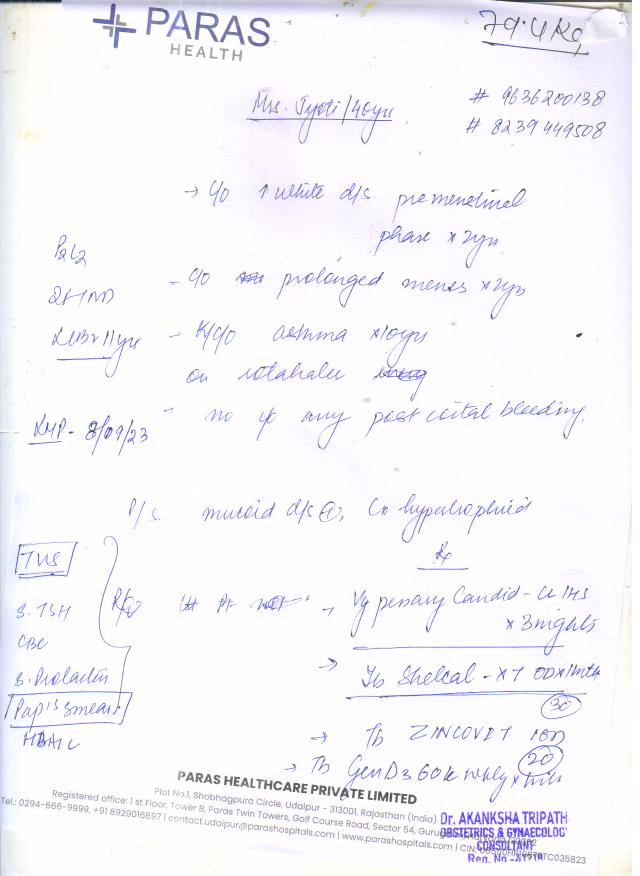 PARAS
HEALTH
79.4 Kg
Mrs. Jyoti/40yr
# 9636200138
# 8239449508
→ c/o ↑ white d/s premenstrual
phase x 2yrs
P2L2
2FTND
LCB → 11yrs
LMP - 8/09/23
- c/o prolonged menses x 2yrs
- K/c/o asthma x 10yrs
on rotahaler
- no c/o any post coital bleeding.
P/s. mucoid d/s ⊕, Cx hypertrophied
TVS
S. TSH
CBC
S. Prolactin
Pap's smear
HBA1C
Rx
→ Vg pessary Candid-CL 1HS
x 3 nights
→ Tb Shelcal-XT OD x 1mth
30
→ Tb ZINCOVIT 1OD
20
→ Tb Gen D3 60k wkly x
PARAS HEALTHCARE PRIVATE LIMITED
Plot No.1, Shobhagpura Circle, Udaipur - 313001, Rajasthan (India)
Registered office: 1st Floor, Tower B, Paras Twin Towers, Golf Course Road, Sector 54,
Tel.: 0294-666-9999, +91 8929016897 | contact.udaipur@parashospitals.com | www.parashospitals.com | CIN:
Dr. AKANKSHA TRIPATH
OBSTETRICS & GYNAECOLOG
CONSULTANT
Reg. No.